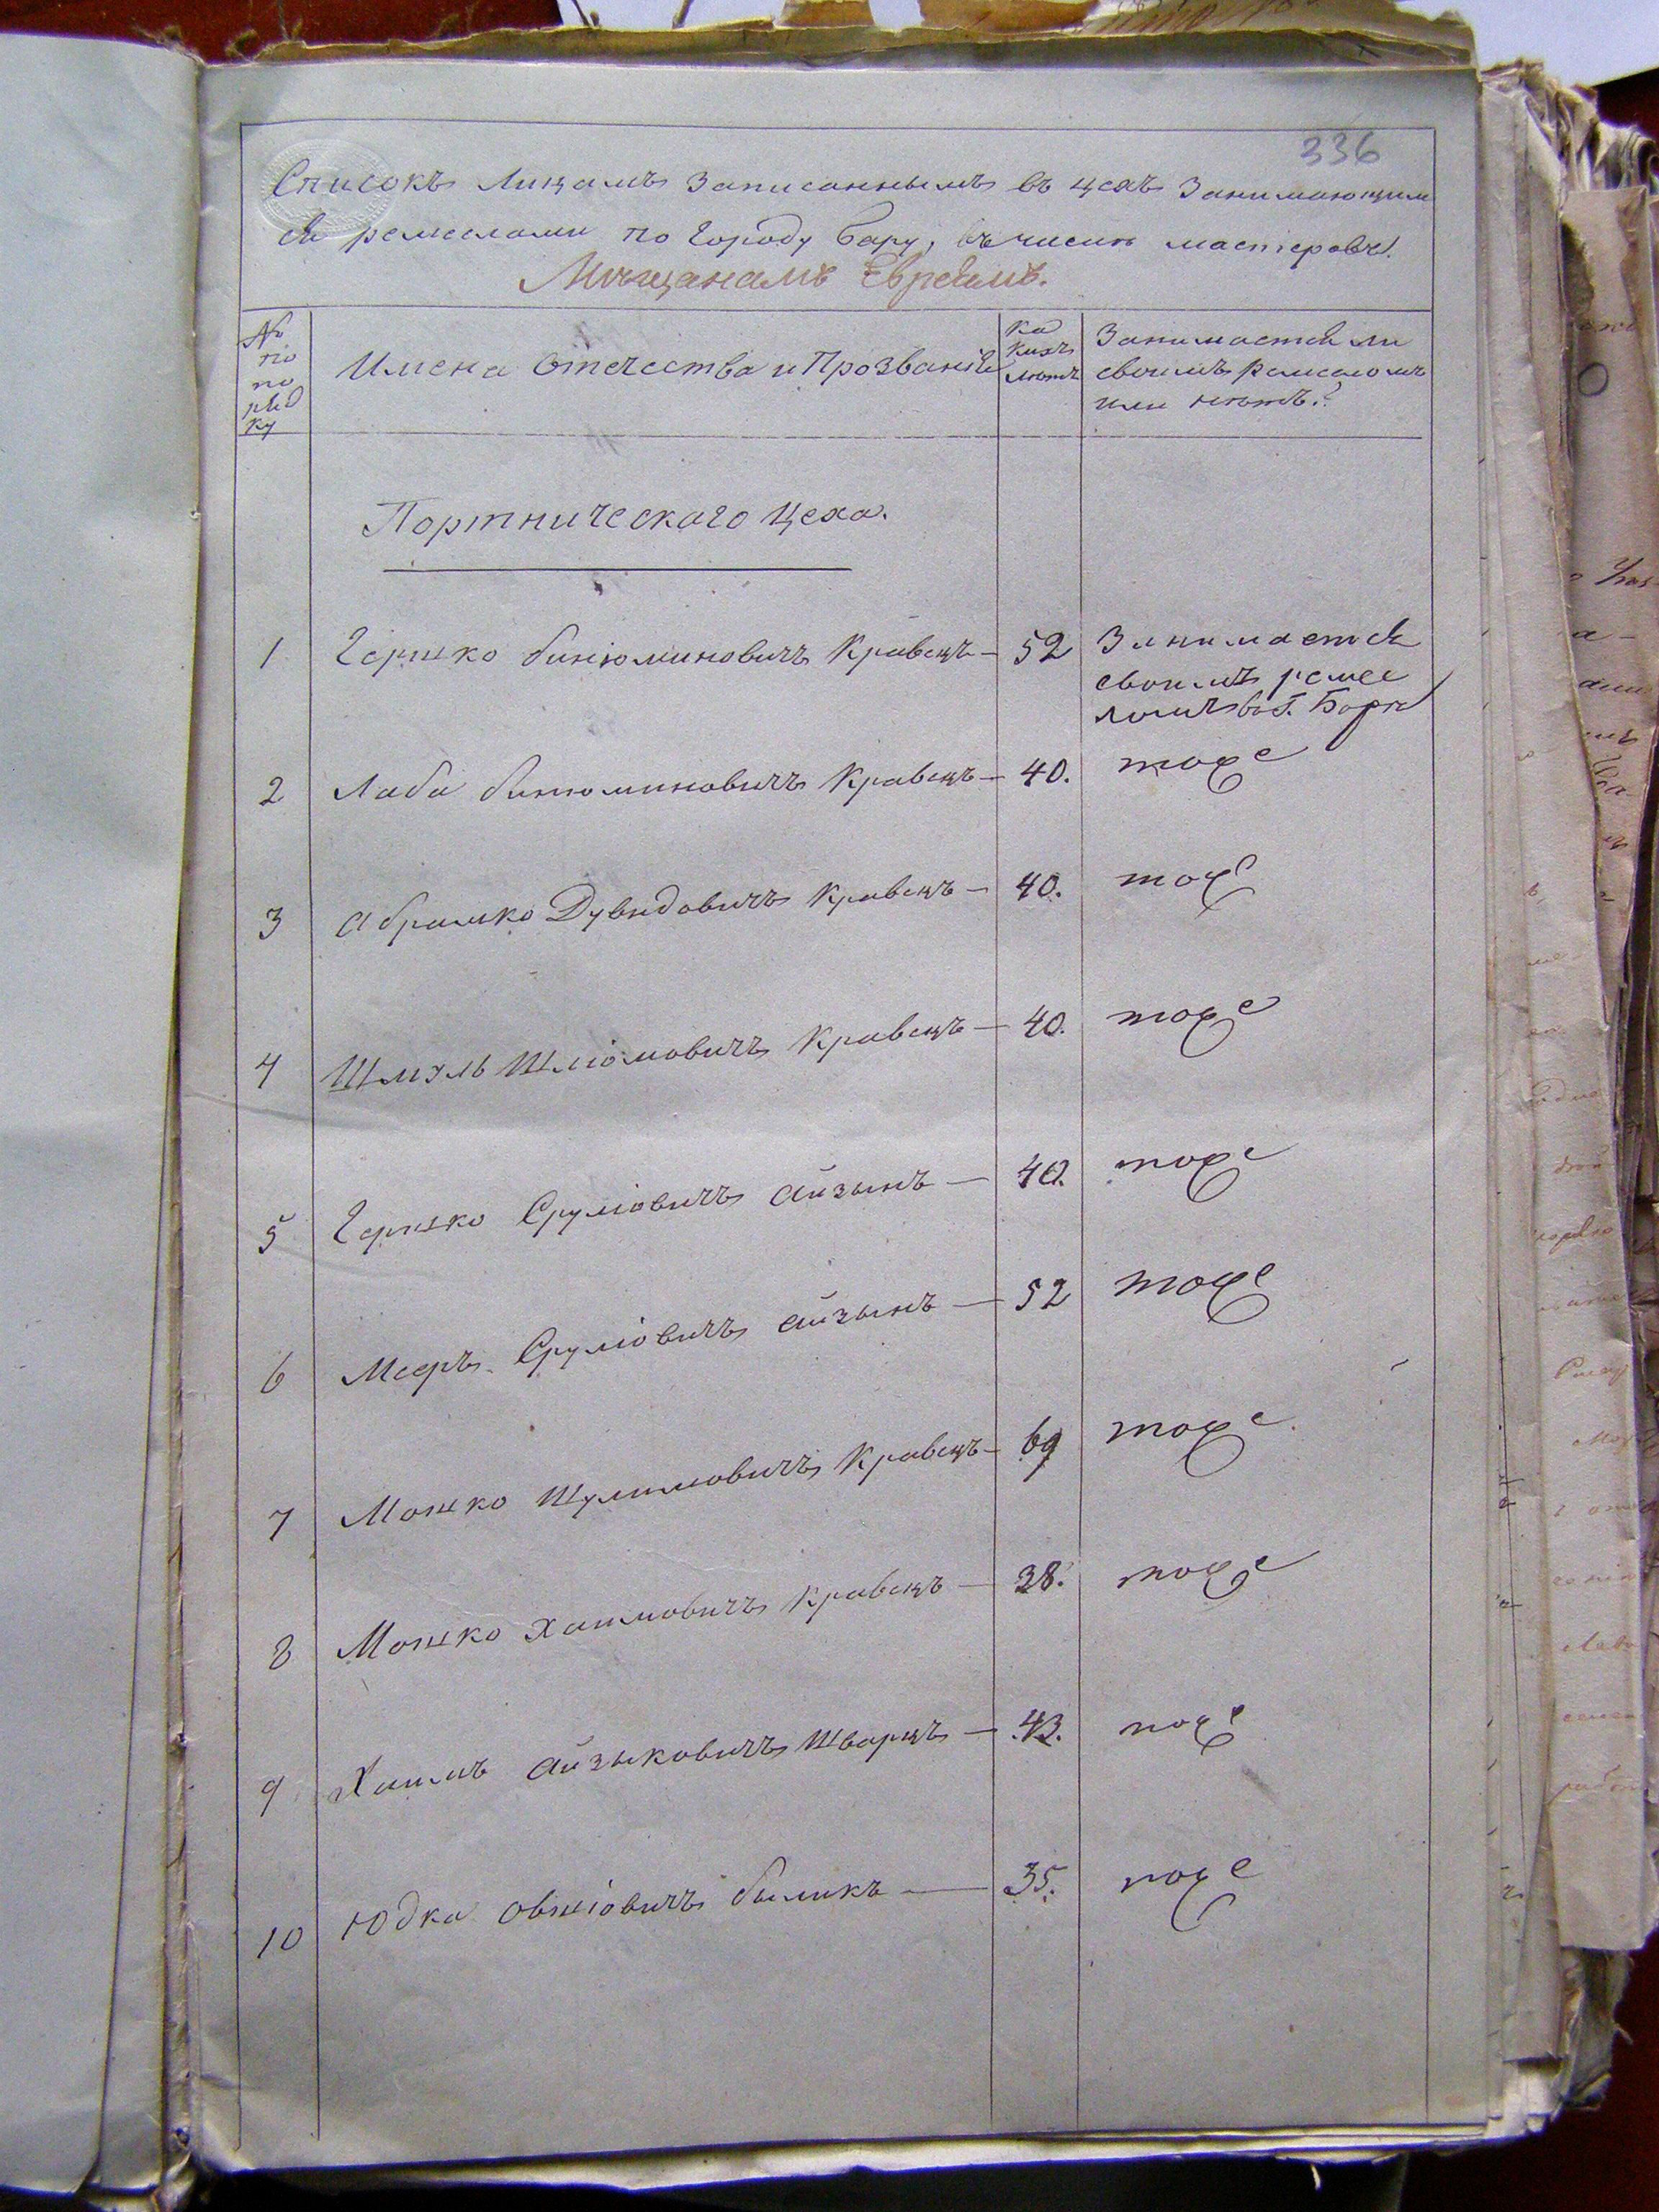 336
Списокъ Лицамъ Записаннымъ въ цехъ Занимающим
ся ремеслами по Городу Бару, въ числѣ мастеровъ.
Мѣщанамъ Евреямъ.
№
по
по
ряд
ку
Имена Отечества и Прозваніе
Ка
кихъ
лѣтъ
Занимается ли
своимъ ремесломъ
или нѣтъ?
Портническаго Цеха.
1 Гершко Биніоминовичъ Кравецъ — 52 Занимается
своимъ ремес
ломъ въ Г. Барѣ
2 Лаба Биніоминовичъ Кравецъ — 40. тоже
3 Абрамко Дувидовичъ Кравецъ — 40. тоже
4 Шмэль Шліомовичъ Кравецъ — 40. тоже
5 Гершко Сруліовичъ Айзынъ — 40. тоже
6 Меэръ Сруліовичъ Айзынъ — 52 тоже
7 Мошко Шулимовичъ Кравецъ — 69 тоже
8 Мошко Хаимовичъ Кравецъ — 38. тоже
9 Хаимъ Айзыковичъ Шварцъ — 43. тоже
10 Юдка Овшіовичъ Быликъ — 35. тоже